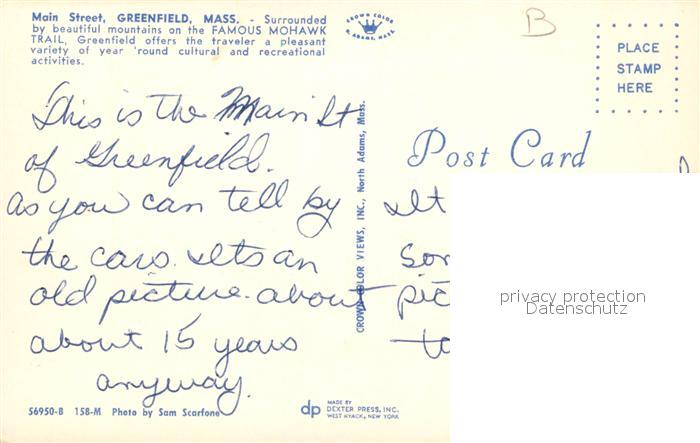 Main Street, GREENFIELD, MASS. - Surrounded
by beautiful mountains on the FAMOUS MOHAWK
TRAIL, Greenfield offers the traveler a pleasant
variety of year 'round cultural and recreational
activities.
CROWN COLOR
N. ADAMS, MASS.
B
PLACE
STAMP
HERE
This is the Main St
of Greenfield.
as you can tell by
the cars. Its an
old picture. about
about 15 years
anyway.
CROWN COLOR VIEWS, INC., North Adams, Mass.
Post Card
It
pic
to
privacy protection
Datenschutz
56950-B 158-M Photo by Sam Scarfone
dp
MADE BY
DEXTER PRESS, INC.
WEST NYACK, NEW YORK